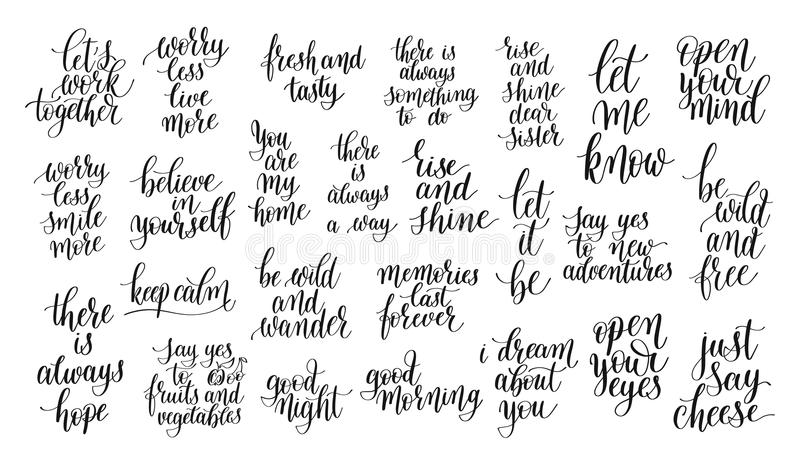 let's
work
together
worry
less
live
more
fresh and
tasty
there is
always
something
to do
rise
and
shine
dear
sister
let
me
know
open
your
mind
worry
less
smile
more
believe
in
yourself
You
are
my
home
there
is
always
a way
rise
and
shine
let
it
be
say yes
to new
adventures
be
wild
and
free
there
is
always
hope
keep calm
be wild
and
wander
memories
last
forever
say yes
to
fruits and
vegetables
good
night
good
morning
i dream
about
you
open
your
eyes
just
say
cheese
dreamstime